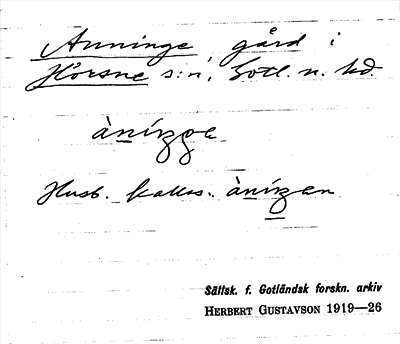 Anninge gård i
Hörsne s:n, Gotl. n. hd.
àníŋge
Husb. kallas: àníŋen
Sällsk. f. Gotländsk forskn. arkiv
HERBERT GUSTAVSON 1919—26